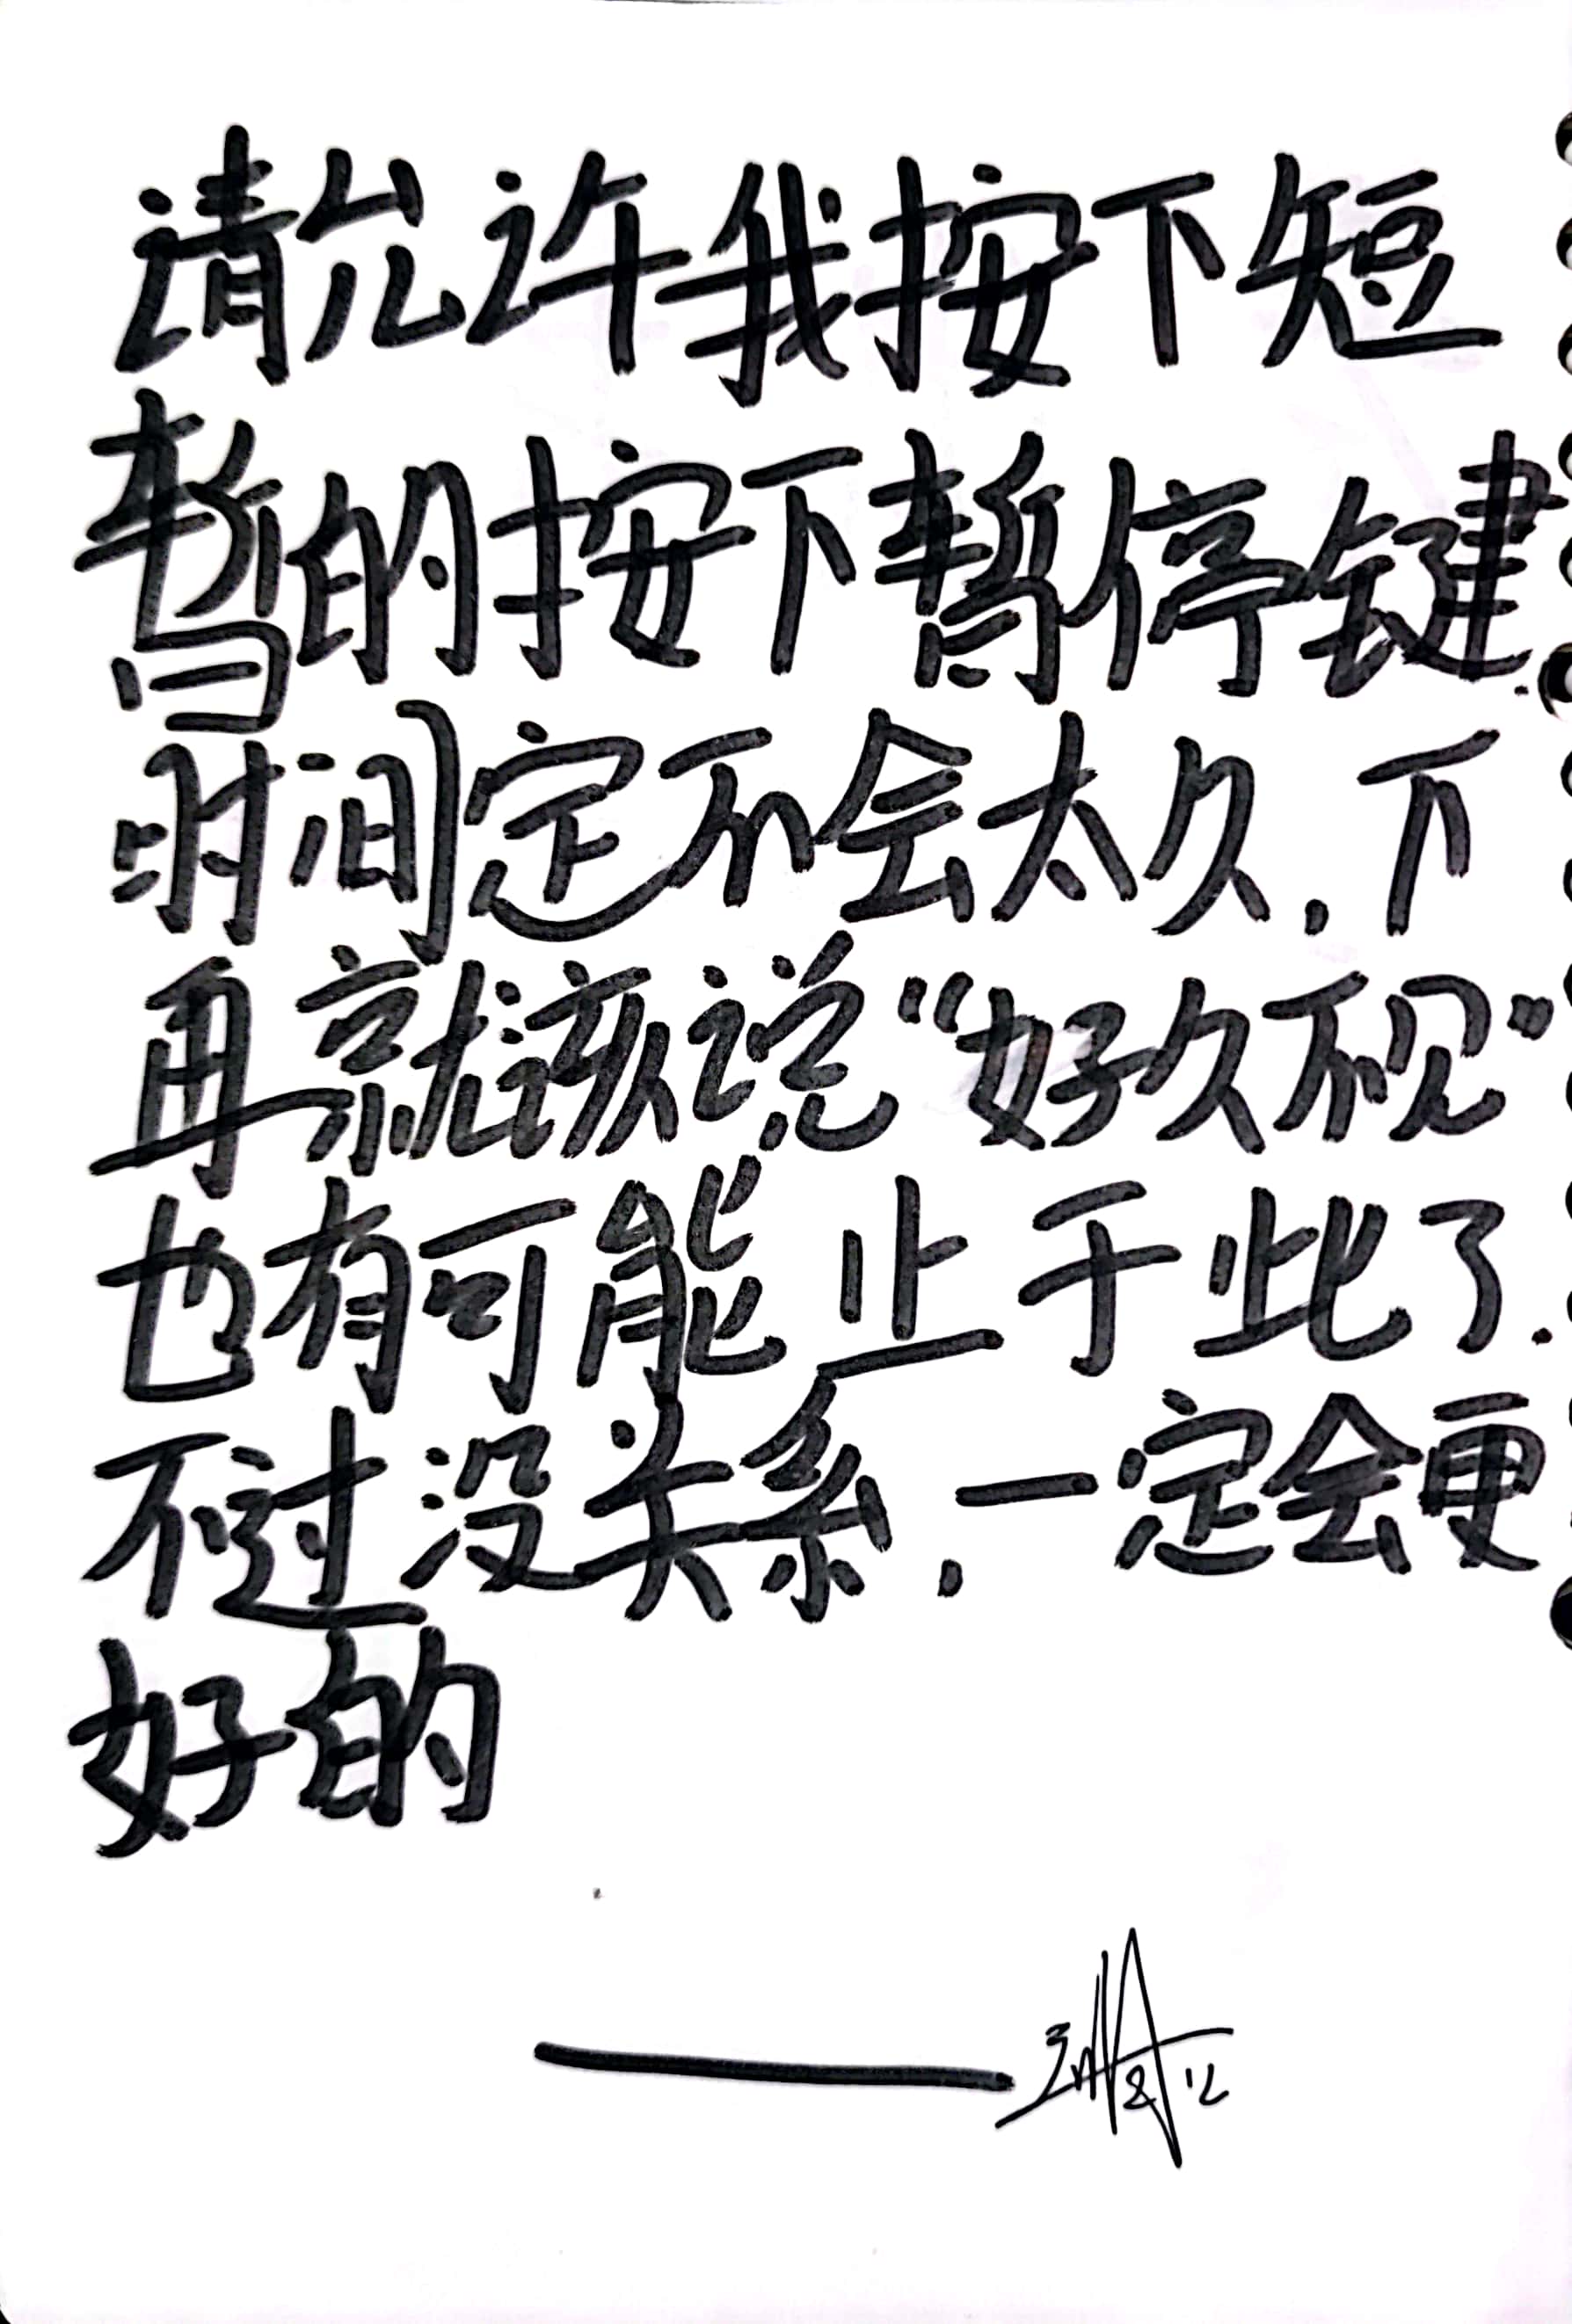 请允许我按下短
暂的按下暂停键.
时间定不会太久.下
再就该说“好久不视”
也有可能止于此了.
不过没关系.一定会更
好的